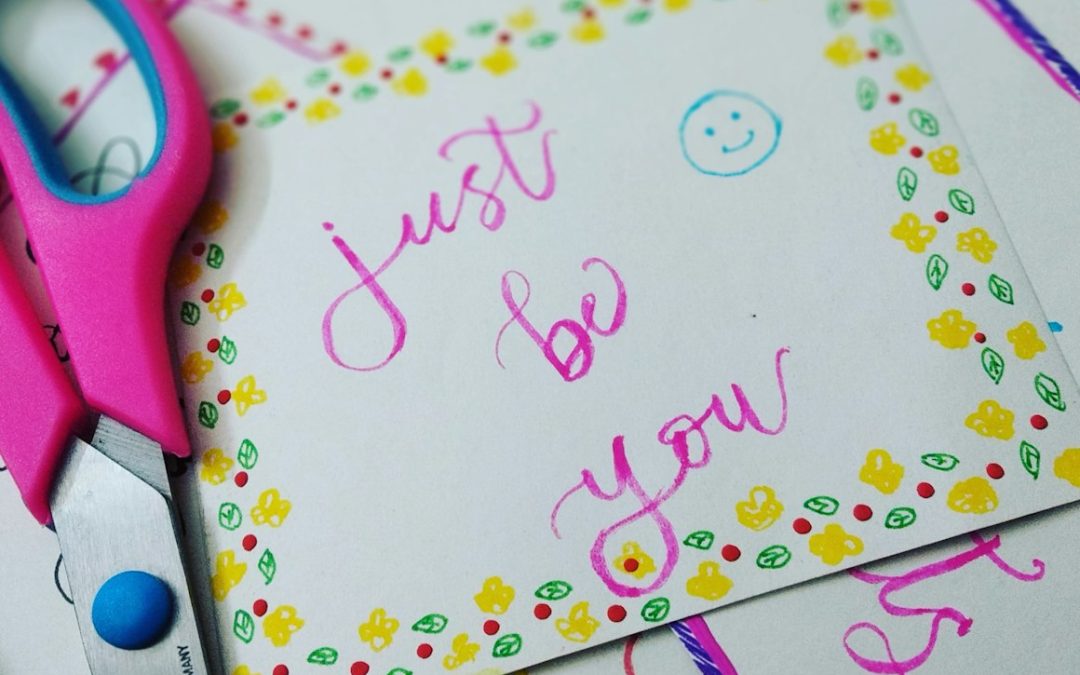 just
be
you
MANY